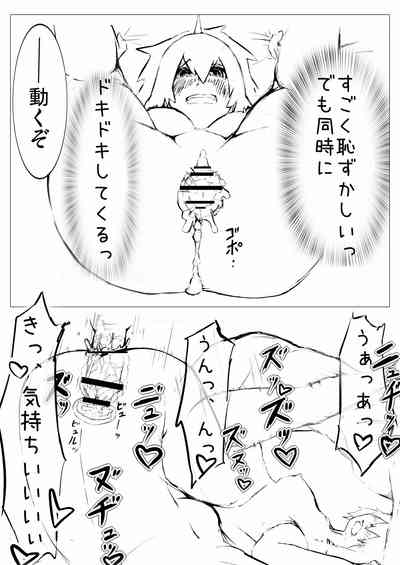 すごく恥ずかしいっ
でも同時に
ドキドキしてくるっ
――動くぞ
ゴポ…
うあっあっ♡
ニュッチ♡
ズッ
ズッ♡
ズッ♡
ズヌッ♡
うんっんっ♡
ニュッ♡
ヌヂュッ♡
ビュッ
ビュルッ
ズッ♡
きっ、気持ちいいいいい♡